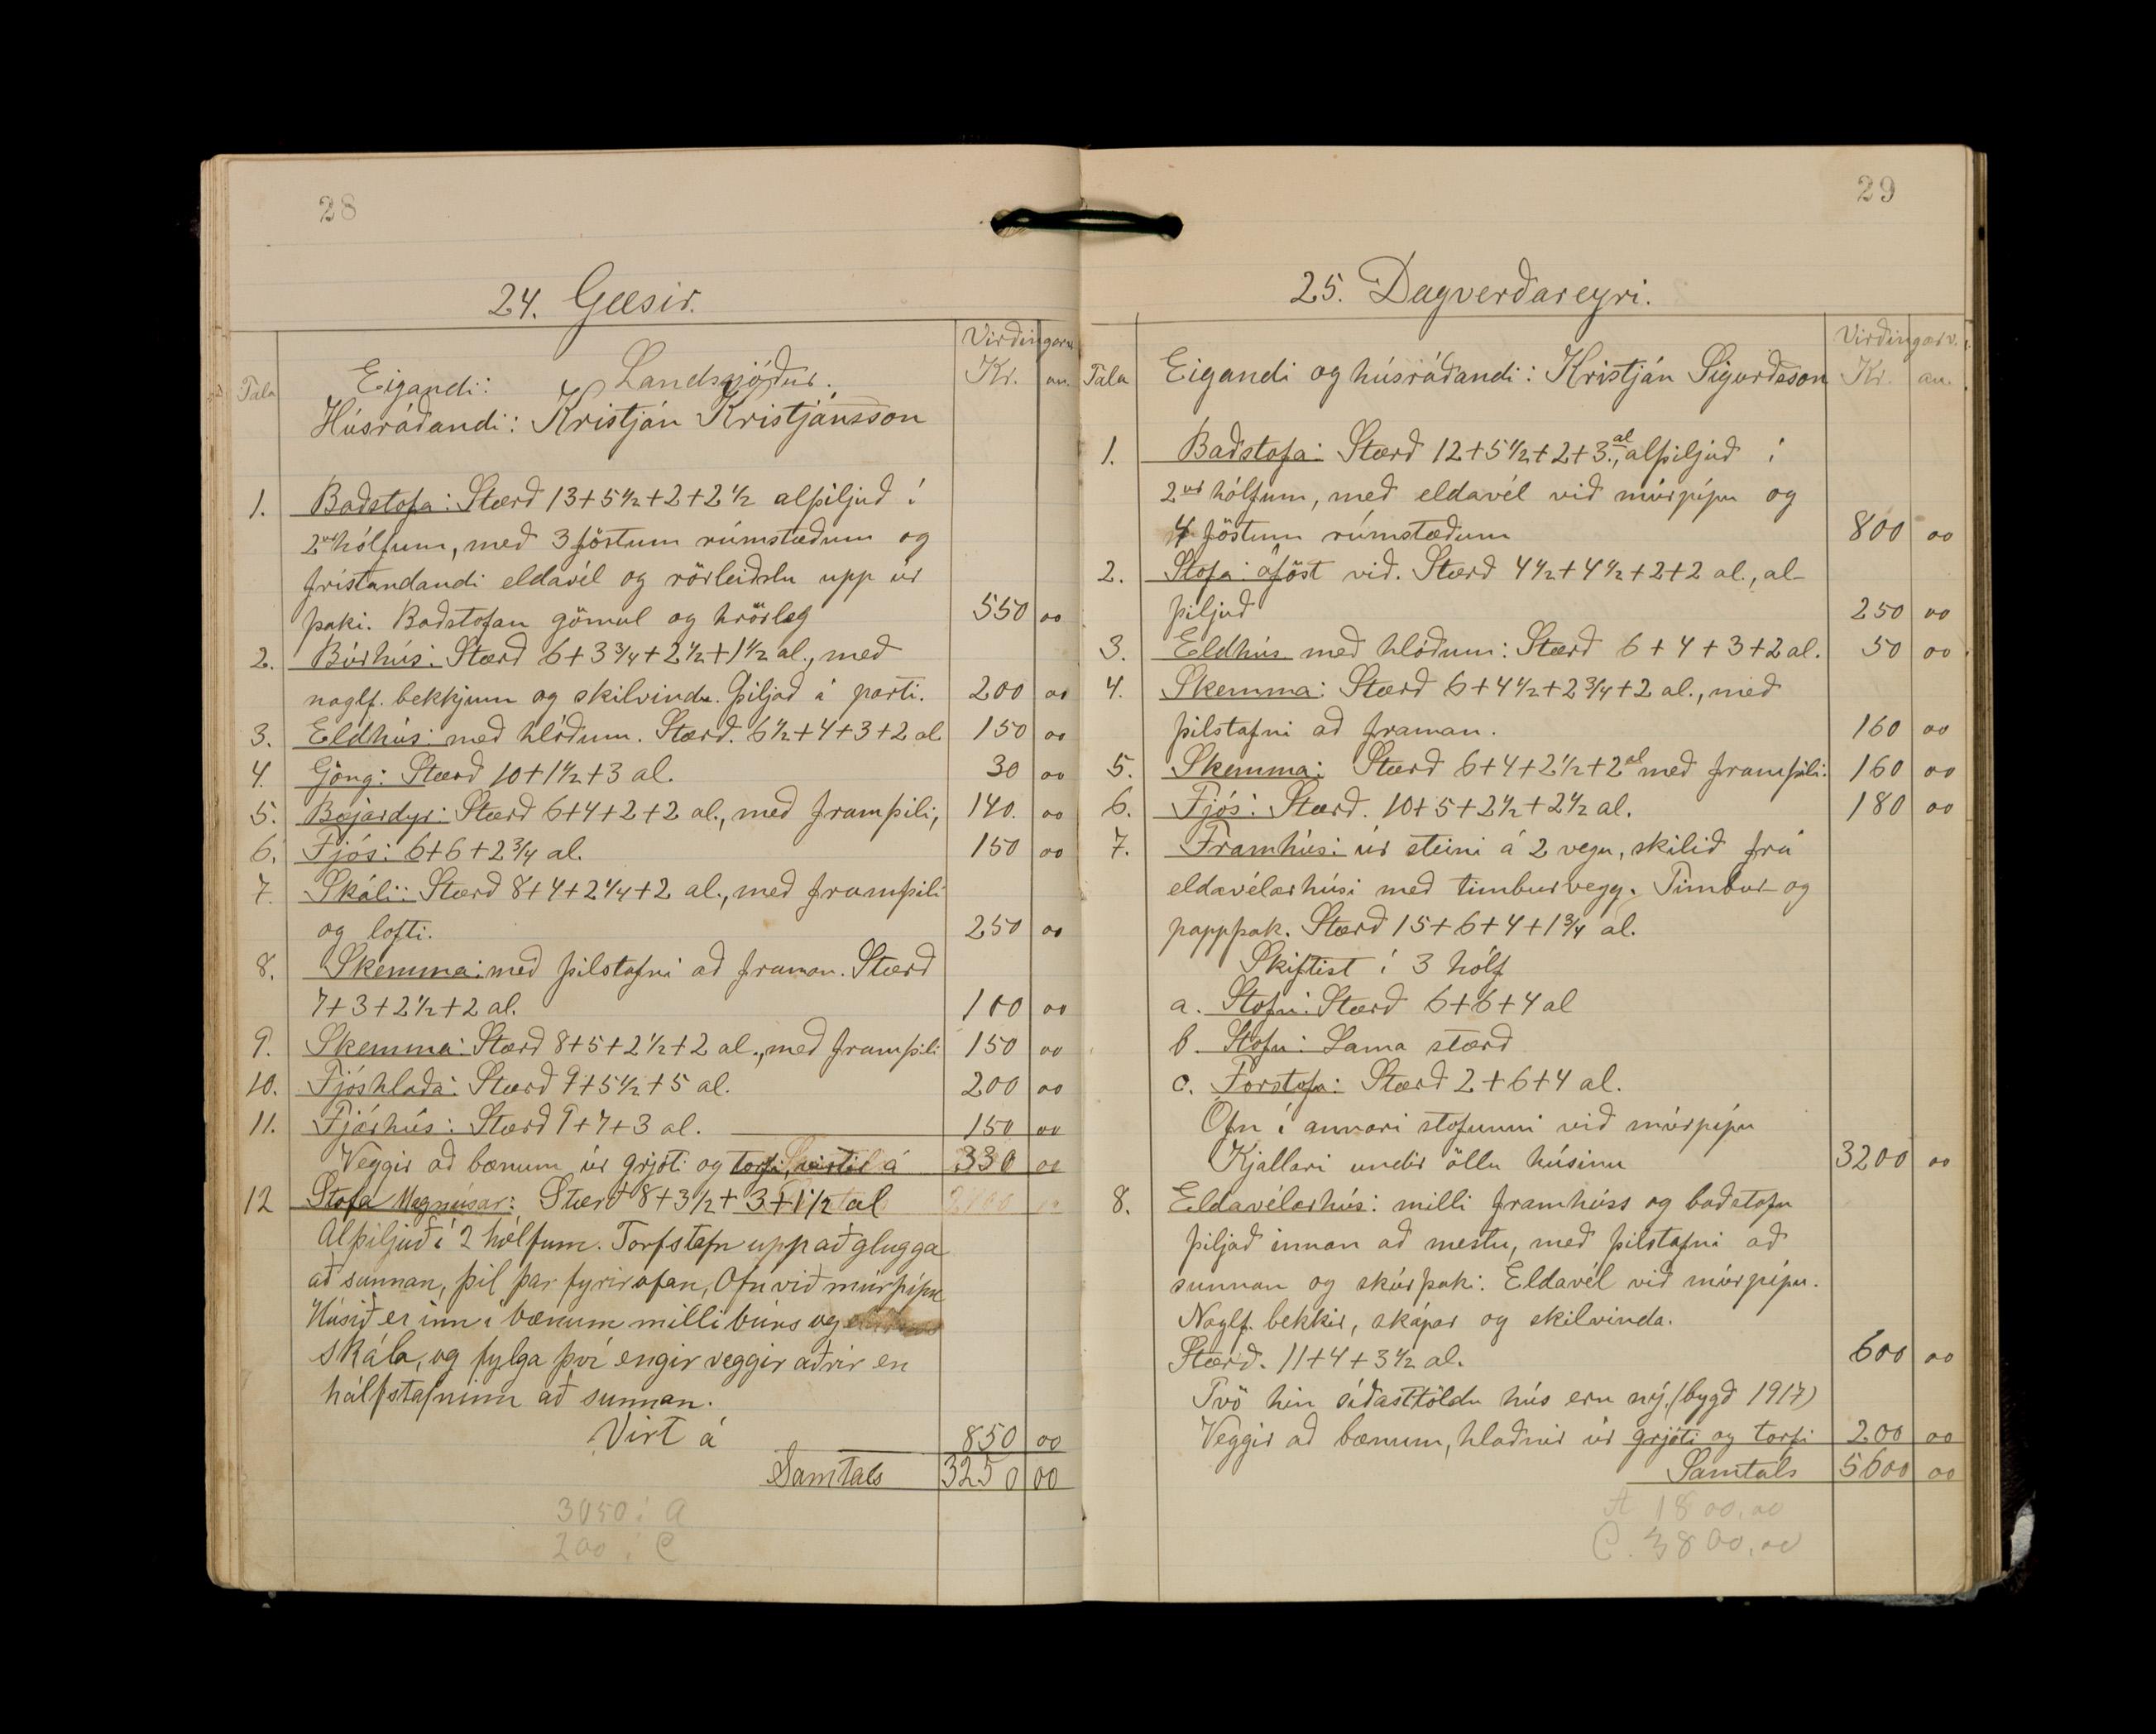 28
24. Gæsir.
Virðingarv.
Tala
Eigandi: Landssjóður.
Kr. au.
Húsráðandi: Kristján Kristjánsson
1. Baðstofa: Stærð 13+5½+2+2½ alþiljuð í
2ur hólfum, með 3 föstum rúmstæðum og
frístandandi eldavél og rörleiðslu upp úr
þaki. Baðstofan gömul og hrörleg 550 00
2. Búrhús: Stærð 6+3¾+2½+1½ al., með
naglf. bekkjum og skilvindu. Þiljað í parti. 200 00
3. Eldhús: með hlóðum. Stærð. 6½+4+3+2 al 150 00
4. Göng: Stærð 10+1½+3 al. 30 00
5. Bæjardyr: Stærð 6+4+2+2 al., með framþili, 140. 00
6. Fjós: 6+6+2¾ al. 150 00
7. Skáli: Stærð 8+4+2¼+2 al., með framþili
og lofti. 250 00
8. Skemma: með þilstafni að framan. Stærð
7+3+2½+2 al. 100 00
9. Skemma: Stærð 8+5+2½+2 al., með framþili 150 00
10. Fjóshlaða: Stærð 9+5½+5 al. 200 00
11. Fjárhús: Stærð 9+7+3 al. 150 00
Veggir að bænum úr grjóti og torfi, virtir á 330 00
12 Stofa Magnúsar: Stærð 8+3½+3+1½ al
Alþiljuð í 2 hólfum. Torfstafn upp að glugga
að sunnan, þil þar fyrir ofan, Ofn við múrpípu
Húsið er inn í bænum milli búrs og
skála, og fylga því engir veggir aðrir en
hálfstafninn að sunnan.
Virt á 850 00
Samtals 3250 00
3050 í A
200 í C
29
25. Dagverðareyri.
Virðingarv.
Tala Eigandi og húsráðandi: Kristján Sigurðsson Kr. au.
1. Baðstofa: Stærð 12+5½+2+3 al., alþiljuð í
2ur hólfum, með eldavél við múrpípu og
4 föstum rúmstæðum 800 00
2. Stofa: áföst við. Stærð 4½+4½+2+2 al., al-
þiljuð 250 00
3. Eldhús með hlóðum: Stærð 6+4+3+2 al. 50 00
4. Skemma: Stærð 6+4½+2¾+2 al., með
þilstafni að framan. 160 00
5. Skemma: Stærð 6+4+2½+2 al með framþili. 160 00
6. Fjós: Stærð. 10+5+2½+2½ al. 180 00
7. Framhús: úr steini á 2 vegu, skilið frá
eldavélarhúsi með timburvegg. Timbur- og
pappþak. Stærð 15+6+4+1¾ al.
Skiftist í 3 hólf
a. Stofa: Stærð 6+6+4 al
b. Stofa: Sama stærð
c. Forstofa: Stærð 2+6+4 al.
Ofn í annari stofunni við múrpípu
Kjallari undir öllu húsinu 3200 00
8. Eldavélarhús: milli framhúss og baðstofu
þiljað innan að mestu, með þilstafni að
sunnan og skúrþaki. Eldavél við múrpípu.
Naglf. bekkir, skápar og skilvinda.
Stærð. 11+4+3½ al. 600 00
Tvö hin síðasttöldu hús eru ný. (bygð 1917)
Veggir að bænum, hlaðnir úr grjóti og torfi 200 00
Samtals 5600 00
A 1800,00
C. 3800,00